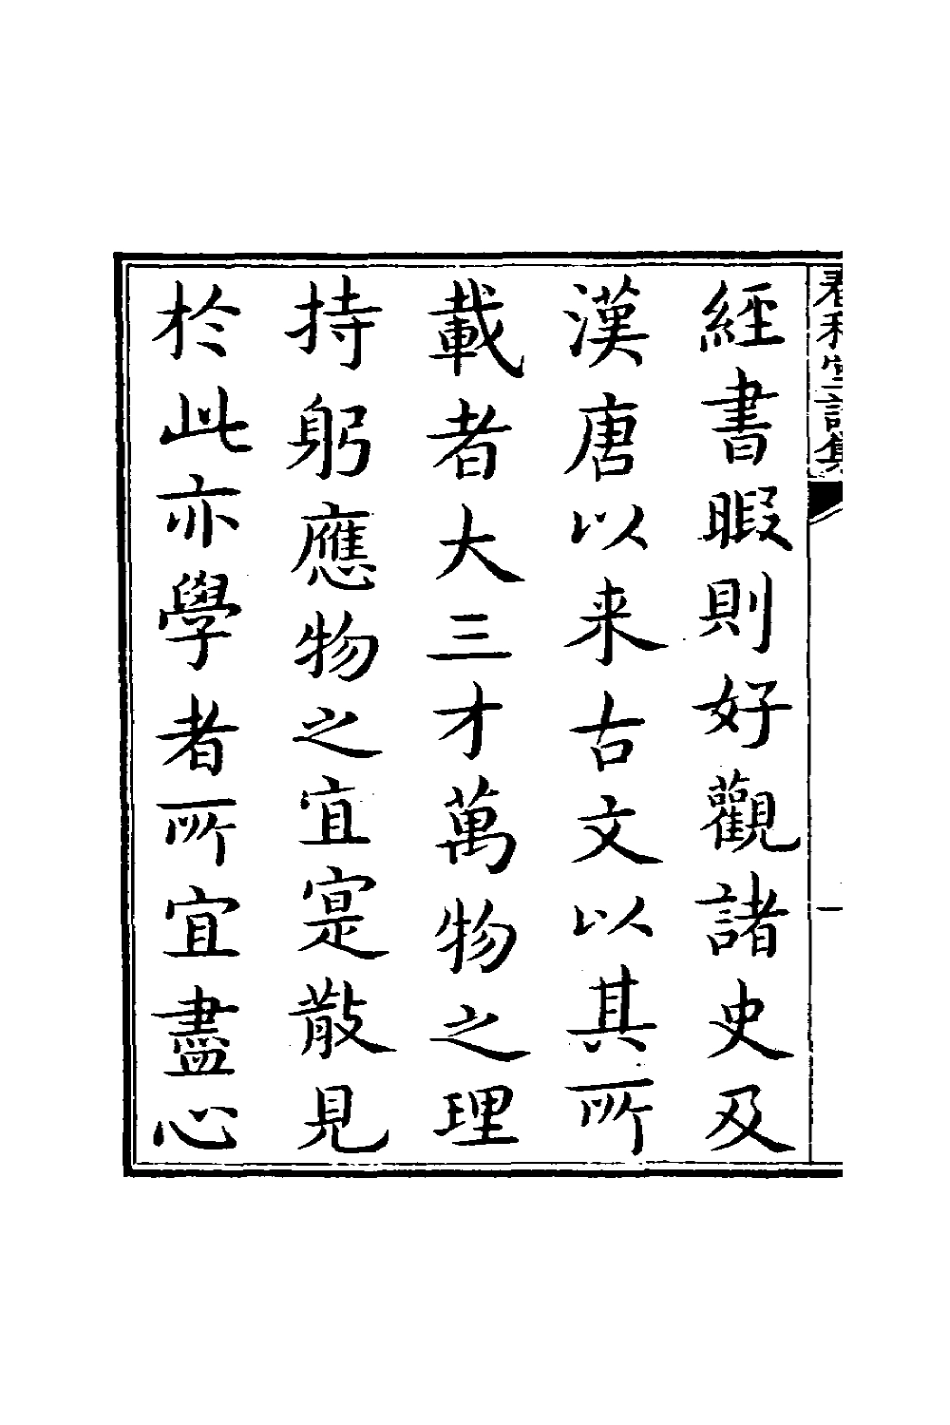 春和堂詩集
一
經書暇則好觀諸史及
漢唐以来古文以其所
載者大三才萬物之理
持躬應物之宜寔散見
於此亦學者所宜盡心